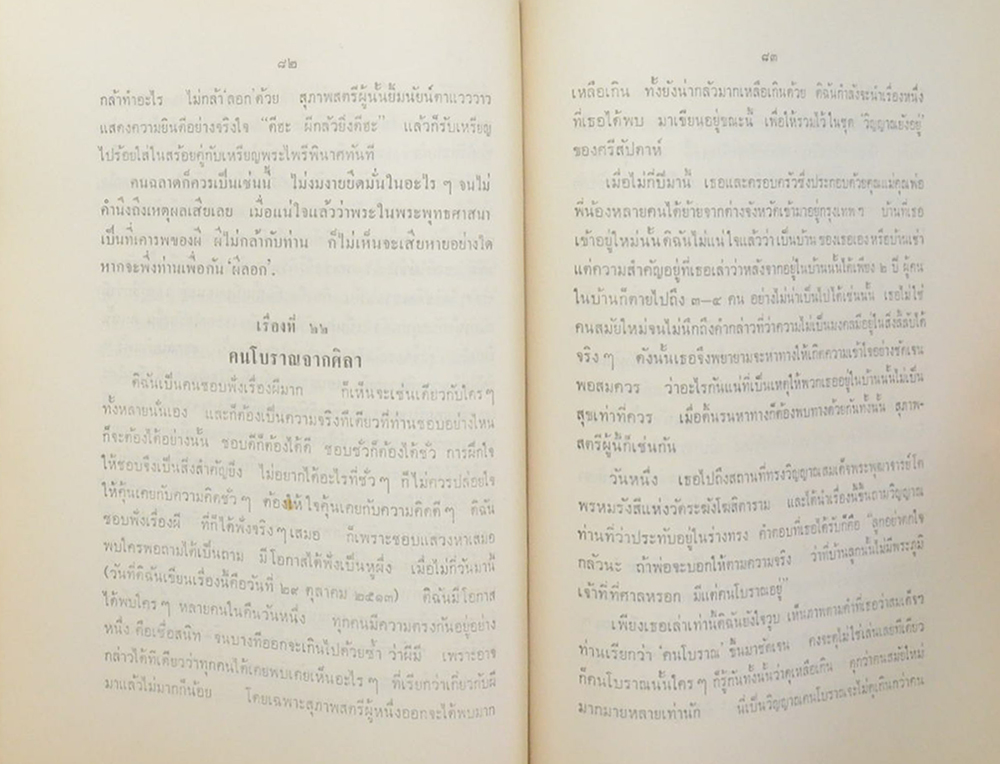 ๘๒
กล้าทำอะไร ไม่กล้า'ลอก'ด้วย สุภาพสตรีผู้นั้นยิ้มนัยน์ตาแวววาว
แสดงความยินดีอย่างจริงใจ "ดีฮะ ผีกลัวยิ่งดีฮะ" แล้วก็รับเหรียญ
ไปร้อยใส่ในสร้อยคู่กับเหรียญพระไพรีพินาศทันที
คนฉลาดก็ควรเป็นเช่นนี้ ไม่งมงายยึดมั่นในอะไร ๆ จนไม่
คำนึงถึงเหตุผลเสียเลย เมื่อแน่ใจแล้วว่าพระในพระพุทธศาสนา
เป็นที่เคารพของผี ผีไม่กล้ากับท่าน ก็ไม่เห็นจะเสียหายอย่างใด
หากจะพึ่งท่านเพื่อกัน 'ผีลอก'.
เรื่องที่ ๒๒
คนโบราณจากศิลา
ดิฉันเป็นคนชอบฟังเรื่องผีมาก ก็เห็นจะเช่นเดียวกับใครๆ
ทั้งหลายนั่นเอง และก็ต้องเป็นความจริงทีเดียวที่ท่านชอบอย่างไหน
ก็จะต้องได้อย่างนั้น ชอบดีก็ต้องได้ดี ชอบชั่วก็ต้องได้ชั่ว การฝึกใจ
ให้ชอบจึงเป็นสิ่งสำคัญยิ่ง ไม่อยากได้อะไรที่ชั่วๆ ก็ไม่ควรปล่อยใจ
ให้คุ้นเคยกับความคิดชั่วๆ ต้องให้ใจคุ้นเคยกับความคิดดีๆ ดิฉัน
ชอบฟังเรื่องผี ที่ก็ได้ฟังจริงๆเสมอ ก็เพราะชอบแสวงหาเสมอ
พบใครพอถามได้เป็นถาม มีโอกาสได้ฟังเป็นหูผึ่ง เมื่อไม่กี่วันมานี้
(วันที่ดิฉันเขียนเรื่องนี้คือวันที่ ๒๙ ตุลาคม ๒๕๑๓) ดิฉันมีโอกาส
ได้พบใครๆ หลายคนในคืนวันหนึ่ง ทุกคนมีความตรงกันอยู่อย่าง
หนึ่ง คือเชื่อสนิท จนบางทีออกจะเกินไปด้วยซ้ำ ว่าผีมี เพราะอาจ
กล่าวได้ทีเดียวว่าทุกคนได้เคยพบเคยเห็นอะไรๆ ที่เรียกว่าเกี่ยวกับผี
มาแล้วไม่มากก็น้อย โดยเฉพาะสุภาพสตรีผู้หนึ่งออกจะได้พบมาก
๘๓
เหลือเกิน ทั้งยังน่ากลัวมากเหลือเกินด้วย ดิฉันกำลังจะนำเรื่องหนึ่ง
ที่เธอได้พบ มาเขียนอยู่ขณะนี้ เพื่อให้รวมไว้ในชุด 'วิญญาณยังอยู่'
ของศรีสัปดาห์
เมื่อไม่กี่ปีมานี้ เธอและครอบครัวซึ่งประกอบด้วยคุณแม่คุณพ่อ
พี่น้องหลายคนได้ย้ายจากต่างจังหวัดเข้ามาอยู่กรุงเทพฯ บ้านที่เธอ
เข้าอยู่ใหม่นั้น ดิฉันไม่แน่ใจแล้วว่าเป็นบ้านของเธอเองหรือบ้านเช่า
แต่ความสำคัญอยู่ที่เธอเล่าว่าหลังจากอยู่ในบ้านนั้นได้เพียง ๒ ปี ผู้คน
ในบ้านก็ตายไปถึง ๓–๔ คน อย่างไม่น่าเป็นไปได้เช่นนั้น เธอไม่ใช่
คนสมัยใหม่จนไม่นึกถึงคำกล่าวที่ว่าความไม่เป็นมงคลมีอยู่ในสิ่งลี้ลับได้
จริงๆ ดังนั้นเธอจึงพยายามจะหาทางให้เกิดความเข้าใจอย่างชัดเจน
พอสมควร ว่าอะไรกันแน่ที่เป็นเหตุให้พวกเธออยู่ในบ้านนั้นไม่เป็น
สุขเท่าที่ควร เมื่อดิ้นรนหาทางก็ต้องพบทางด้วยกันทั้งนั้น สุภาพ-
สตรีผู้นี้ก็เช่นกัน
วันหนึ่ง เธอไปถึงสถานที่ทรงวิญญาณสมเด็จพระพุฒาจารย์โต
พรหมรังสีแห่งวัดระฆังโฆสิตาราม และได้นำเรื่องนี้ขึ้นถามวิญญาณ
ท่านที่ว่าประทับอยู่ในร่างทรง คำตอบที่เธอได้รับก็คือ "ลูกอย่าตกใจ
กลัวนะ ถ้าพ่อจะบอกให้ตามความจริง ว่าที่บ้านลูกนั้นไม่มีพระภูมิ
เจ้าที่ที่ศาลหรอก มีแต่คนโบราณอยู่"
เพียงเธอเล่าเท่านี้ดิฉันยังใจวูบ เห็นภาพตามคำที่เธอว่าสมเด็จฯ
ท่านเรียกว่า 'คนโบราณ' ขึ้นมาชัดเจน คงจะดุไม่ใช่เล่นเลยทีเดียว
ก็คนโบราณนั้นใครๆ ก็รู้กันทั้งนั้นว่าดุเหลือเกิน ดุกว่าคนสมัยใหม่
มากมายหลายเท่านัก นี่เป็นวิญญาณคนโบราณจะไม่ดุเกินกว่าคน